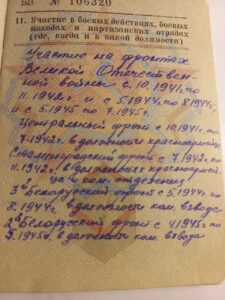 БВ № 106320
11. Участие в боевых действиях, боевых
походах и партизанских отрядах
(где, когда и в какой должности)
Участие на фронтах
Великой Отечествен-
ной войны с 10.1941г. по
11.1942г. и с 5.1944г. по 8.1944г.
и с 5.1945 по 7.1945г.
Центральный фронт с 10.1941г. по
7.1942г. в должности красноармейца
Сталинградский фронт с 7.1942г. по
11.1942г. в должности красноармейца
и ком. отделения
3й Белорусский фронт с 5.1944г. по
8.1944г. в должности ком. взвода
2й Белорусский фронт с 4.1945г. по
5.1945г. в должности ком. взвода